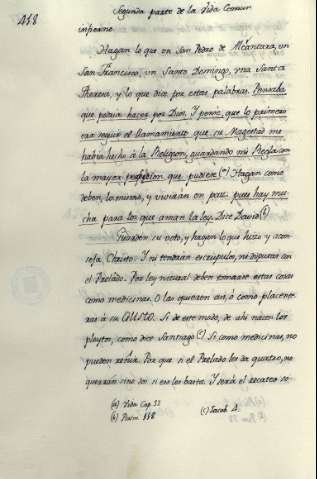 418
Segunda parte de la Vida Comun
infierno.
Hagan lo que vn San Pedro de Alcantara, un
San Francisco, un Santo Domingo, vna Santa
Theresa, y lo que dice por estas palabras.
que podria hacer por Dios. Y pensè, que lo primero
era seguir el llamamiento que su Magestad me
habia hecho à la Religion, guardando mi Regla con
la mayor perfeccion que pudiese (a) Hagan como
deben, las mismas, y viviràn en paz. pues hay mu-
cha para los que aman la ley. Dice David (b)
su voto, y hagan lo que hizo y acon-
seja Christo. Y ni tendràn escrupulo, ni disputas con
el Prelado. Por ley natural deben tomarse estas cosas
como medicinas. O las quieren asi, ò como placente-
ras à su GUSTO. Si de este modo, de ahi nacen los
pleytos, como dice Santiago (c) Si como medicinas, no
pueden reñir. Por que si el Prelado les da quatro, no
querràn sino dos si eso les basta. Y serà el recato so-
(a) Vida Cap. 32
(b) Psalm. 118
(c) Jacob. 4.